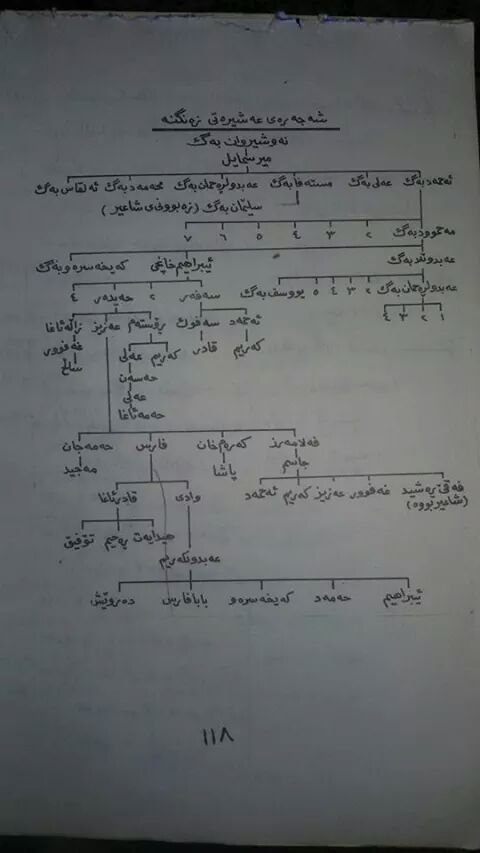 شەجەرەی عەشیرەتی زەنگنە
نەوشیروان بەگ
میرسمایل
ئەحمەد بەگ عەلی بەگ مستەفا بەگ عەبدولڕەحمان بەگ محەمەد بەگ ئەلقاس بەگ
سلێمان بەگ (زەبوونی شاعیر)
مەحموود بەگ ٢ ٣ ٤ ٥ ٦ ٧
عەبدوڵا بەگ ئیبراهیم خانچی کەیخەسرەو بەگ
عەبدولڕەحمان بەگ ٢ ٣ ٤ ٥ یووسف بەگ سەفەر ٢ حەیدەر ٤
١ ٢ ٣ ٤ ئەحمەد سەفوك ڕۆستەم عەزیز زاڵە ئاغا
کەریم قادر کەریم عەلی غەفوور
حەسەن ساڵح
عەلی
حەمە ئاغا
فەلامەرز کەرەم خان فارس حەمەجان
جاسم پاشا مەجید
فەقێ ڕەشید غەفوور عەزیز کەریم ئەحمەد وادی قادر ئاغا
(شاعیر بووە)
هیدایەت ڕەحیم تۆفیق
عەبدولکەریم
ئیبراهیم حەمەد کەیخەسرەو بابافارس دەروێش
١١٨